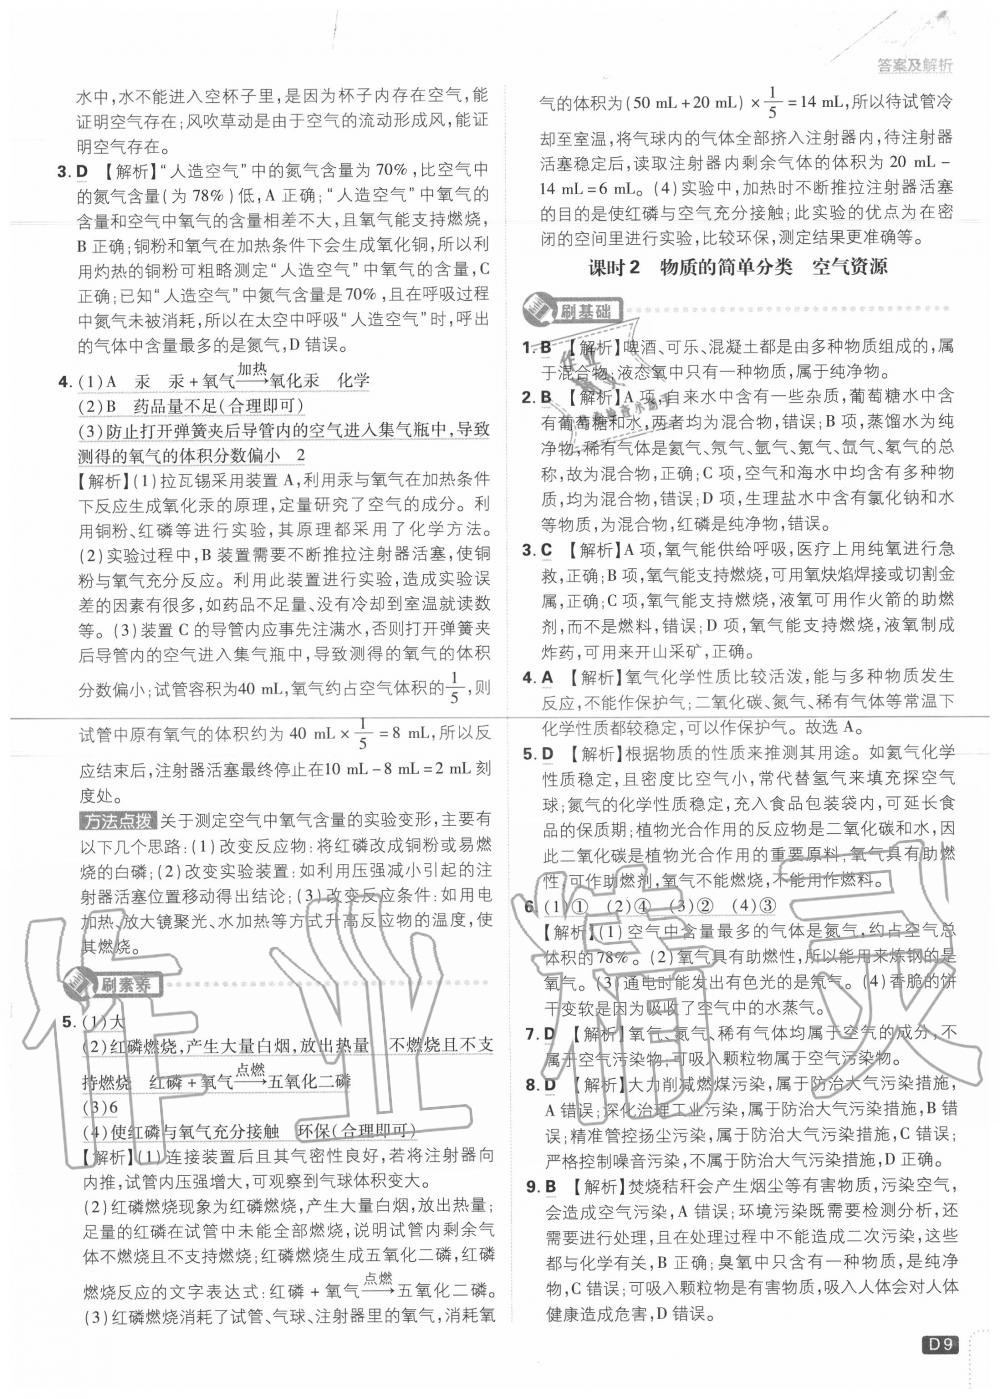 答案及解析
水中,水不能进入空杯子里,是因为杯子内存在空气,能
证明空气存在;风吹草动是由于空气的流动形成风,能证
明空气存在。
3. D 【解析】“人造空气”中的氮气含量为 70%,比空气中
的氮气含量(为 78%)低,A 正确;“人造空气”中氧气的
含量和空气中氧气的含量相差不大,且氧气能支持燃烧,
B 正确;铜粉和氧气在加热条件下会生成氧化铜,所以利
用灼热的铜粉可粗略测定“人造空气”中氧气的含量,C
正确;已知“人造空气”中氮气含量是 70%,且在呼吸过程
中氮气未被消耗,所以在太空中呼吸“人造空气”时,呼出
的气体中含量最多的是氮气,D 错误。
4. (1)A 汞 汞+氧气 加热→ 氧化汞 化学
(2)B 药品量不足(合理即可)
(3)防止打开弹簧夹后导管内的空气进入集气瓶中,导致
测得的氧气的体积分数偏小 2
【解析】(1)拉瓦锡采用装置 A,利用汞与氧气在加热条件
下反应生成氧化汞的原理,定量研究了空气的成分。利
用铜粉、红磷等进行实验,其原理都采用了化学方法。
(2)实验过程中,B 装置需要不断推拉注射器活塞,使铜
粉与氧气充分反应。利用此装置进行实验,造成实验误
差的因素有很多,如药品不足量、没有冷却到室温就读数
等。(3)装置 C 的导管内应事先注满水,否则打开弹簧夹
后导管内的空气进入集气瓶中,导致测得的氧气的体积
分数偏小;试管容积为40 mL,氧气约占空气体积的1/5,则
试管中原有氧气的体积约为 40 mL×1/5=8 mL,所以反
应结束后,注射器活塞最终停止在10 mL-8 mL=2 mL 刻
度处。
方法点拨 关于测定空气中氧气含量的实验变形,主要有
以下几个思路:(1)改变反应物:将红磷改成铜粉或易燃
烧的白磷;(2)改变实验装置:如利用压强减小引起的注
射器活塞位置移动得出结论;(3)改变反应条件:如用电
加热、放大镜聚光、水加热等方式升高反应物的温度,使
其燃烧。
刷素养
5. (1)大
(2)红磷燃烧,产生大量白烟,放出热量 不燃烧且不支
持燃烧 红磷+氧气 点燃→ 五氧化二磷
(3)6
(4)使红磷与氧气充分接触 环保(合理即可)
【解析】(1)连接装置后且其气密性良好,若将注射器向
内推,试管内压强增大,可观察到气球体积变大。
(2)红磷燃烧现象为红磷燃烧,产生大量白烟,放出热量;
足量的红磷在试管中未能全部燃烧,说明试管内剩余气
体不燃烧且不支持燃烧;红磷燃烧生成五氧化二磷,红磷
燃烧反应的文字表达式:红磷+氧气 点燃→ 五氧化二磷。
(3)红磷燃烧消耗了试管、气球、注射器里的氧气,消耗氧
气的体积为(50 mL+20 mL)×1/5=14 mL,所以待试管冷
却至室温,将气球内的气体全部挤入注射器内,待注射器
活塞稳定后,读取注射器内剩余气体的体积为 20 mL-
14 mL=6 mL。(4)实验中,加热时不断推拉注射器活塞
的目的是使红磷与空气充分接触;此实验的优点为在密
闭的空间里进行实验,比较环保,测定结果更准确等。
课时2 物质的简单分类 空气资源
刷基础
1. B 【解析】啤酒、可乐、混凝土都是由多种物质组成的,属
于混合物;液态氧中只有一种物质,属于纯净物。
2. B 【解析】A 项,自来水中含有一些杂质,葡萄糖水中含
有葡萄糖和水,两者均为混合物,错误;B 项,蒸馏水为纯
净物,稀有气体是氦气、氖气、氩气、氪气、氙气、氡气的总
称,故为混合物,正确;C 项,空气和海水中均含有多种物
质,均为混合物,错误;D 项,生理盐水中含有氯化钠和水
等物质,为混合物,红磷是纯净物,错误。
3. C 【解析】A 项,氧气能供给呼吸,医疗上用纯氧进行急
救,正确;B 项,氧气能支持燃烧,可用氧炔焰焊接或切割金
属,正确;C 项,氧气能支持燃烧,液氧可用作火箭的助燃
剂,而不是燃料,错误;D 项,氧气能支持燃烧,液氧制成
炸药,可用来开山采矿,正确。
4. A 【解析】氧气化学性质比较活泼,能与多种物质发生
反应,不能作保护气;二氧化碳、氮气、稀有气体等常温下
化学性质都较稳定,可以作保护气。故选 A。
5. D 【解析】根据物质的性质来推测其用途。如氦气化学
性质稳定,且密度比空气小,常代替氢气来填充探空气
球;氮气的化学性质稳定,充入食品包装袋内,可延长食
品的保质期;植物光合作用的反应物是二氧化碳和水,因
此二氧化碳是植物光合作用的重要原料;氧气具有助燃
性,可作助燃剂,氧气不能燃烧,不能用作燃料。
6. (1)① (2)④ (3)② (4)③
【解析】(1)空气中含量最多的气体是氮气,约占空气总
体积的78%。(2)氧气具有助燃性,所以能用来炼钢的是
氧气。(3)通电时能发出有色光的是氖气。(4)香脆的饼
干变软是因为吸收了空气中的水蒸气。
7. D 【解析】氧气、氮气、稀有气体均属于空气的成分,不
属于空气污染物,可吸入颗粒物属于空气污染物。
8. D 【解析】大力削减燃煤污染,属于防治大气污染措施,
A 错误;深化治理工业污染,属于防治大气污染措施,B 错
误;精准管控扬尘污染,属于防治大气污染措施,C 错误;
严格控制噪音污染,不属于防治大气污染措施,D 正确。
9. B 【解析】焚烧秸秆会产生烟尘等有害物质,污染空气,
会造成空气污染,A 错误;环境污染既需要检测分析,还
需要进行处理,且在处理过程中不能造成二次污染,这些
都与化学有关,B 正确;臭氧中只含有一种物质,是纯净
物,C 错误;可吸入颗粒物是有害物质,吸入人体会对人体
健康造成危害,D 错误。
D9
作业精灵